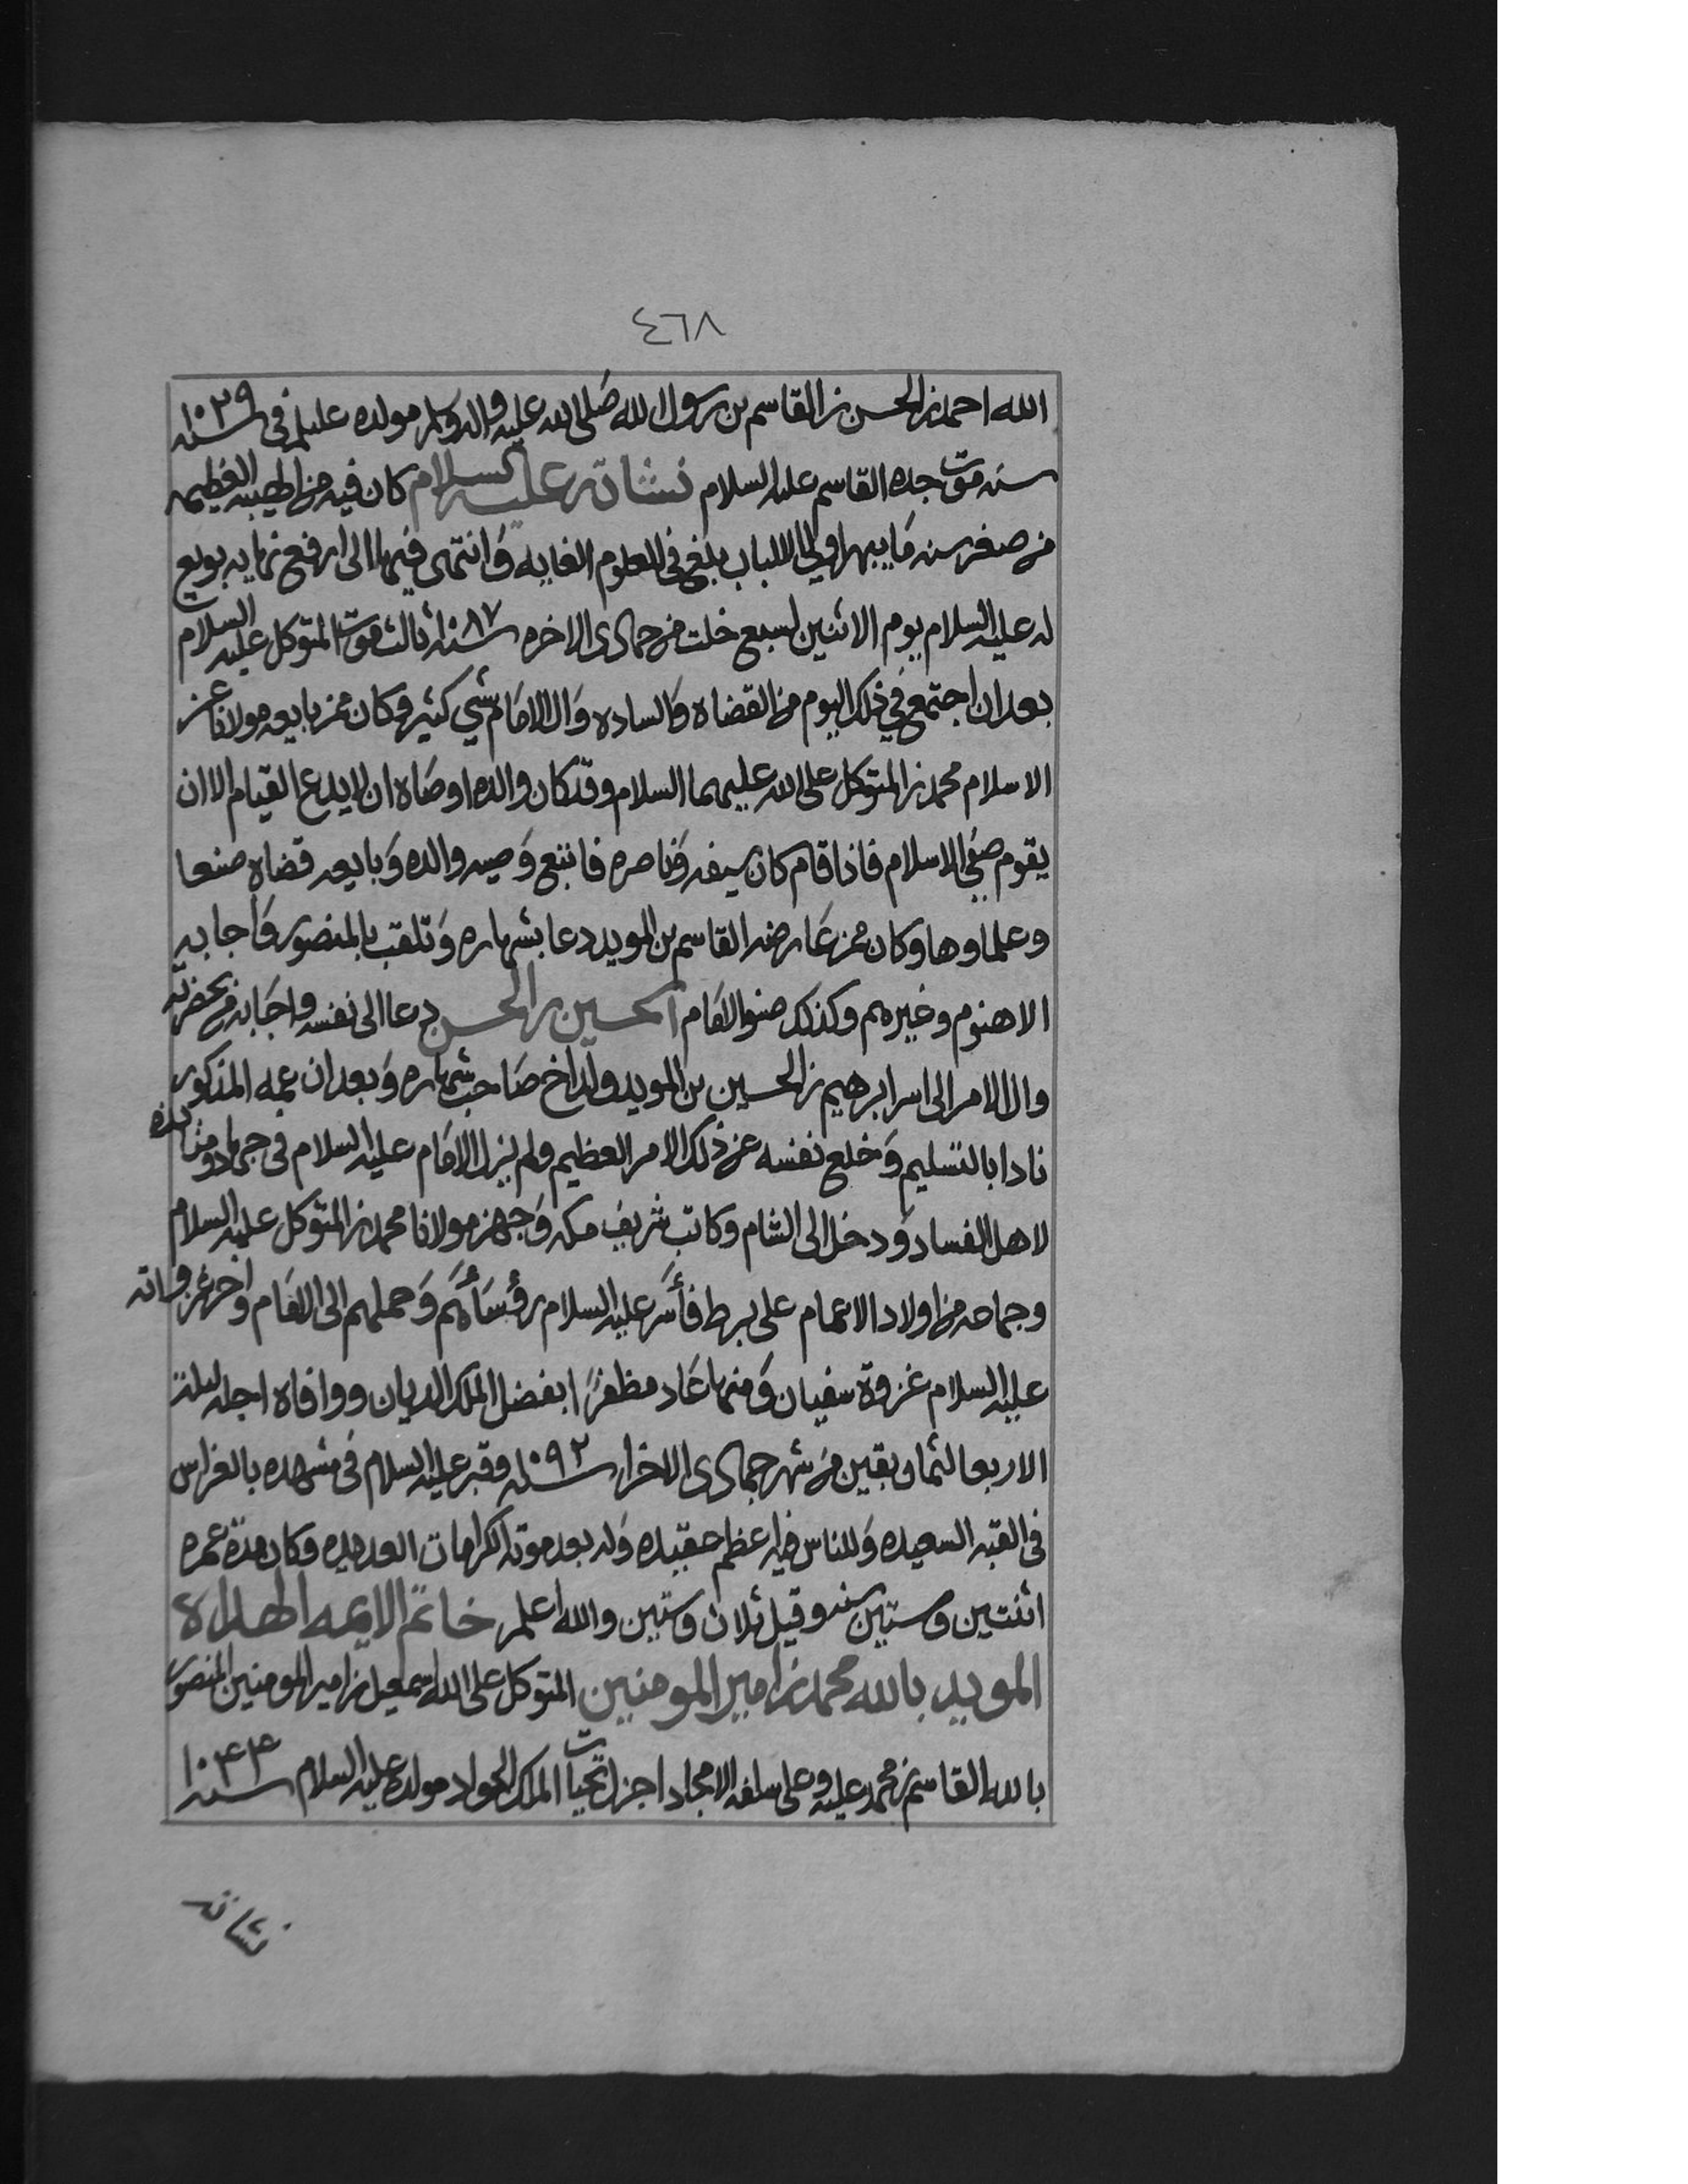 ٤٦٨
الله احمد بن الحسن بن القاسم بن رسول الله صلى الله عليه واله وسلم مولده عليلم في سنه ١٠٢٩
سنه موت جده القاسم عليه السلام نشاته عليه السلام كان فيه من الهيبه العظيمه
من صغر سنه ما يبهر اولي الالباب بلغ في العلوم الغايه وانتهى فيها الى ارفع نهايه بويع
له عليه السلام يوم الاثنين لسبع خلت من جمادى الاخره سنه ١٠٨٧ ثالث موت المتوكل عليه السلام
بعد ان اجتمع في ذلك اليوم من القضاه والساده وال الامام شي كثير وكان ممن بايعه مولانا عز
الاسلام محمد بن المتوكل على الله عليهما السلام وقد كان والده اوصاه ان لا يدع القيام الا ان
يقوم صفي الاسلام فاذا قام كان سيفه وناصره فاتبع وصيه والده وبايعه قضاه صنعا
وعلماوها وكان ممن عارضه القاسم بن المويد دعا بشهاره وتلقب بالمنصور واجابه
الاهنوم وغيرهم وكذلك صنو الامام الحسين بن الحسن دعا الى نفسه واجابه من بحضرته
وال الامر الى اسر ابرهيم بن الحسين بن المويد ولد اخ صاحب شهاره وبعد ان عمه المذكور
نادا بالتسليم وخلع نفسه عن ذلك الامر العظيم ولم يزل الامام عليه السلام في جهاد ومنابذه
لاهل الفساد ودخل الى الشام وكاتب شريف مكه وجهز مولانا محمد بن المتوكل عليه السلام
وجماعه من اولاد الاعمام على برط فأسر عليه السلام رؤسأهم وحملهم الى الامام واخر غزواته
عليه السلام غزوة سفيان ومنها عاد مظفرًا بفضل الملك الديان ووافاه اجله ليلة
الاربعا لثمان بقين من شهر جمادى الاخرا سنه ١٠٩٢ وقبر عليه السلام في مشهده بالغراس
في القبه السعيده وللناس فيه اعظم عقيده وله بعد موته الكرامات العديده وكان مدة عمره
اثنتين وستين سنه وقيل ثلاث وستين والله اعلم خاتم الايمه الهداة
المويد بالله محمد بن امير المومنين المتوكل على الله اسمعيل بن امير المومنين المنصور
بالله القاسم بن محمد عليه وعلى سلفه الامجاد اجزل تحيات الملك الجواد مولده عليه السلام سنه ١٠٤٤
نشاته